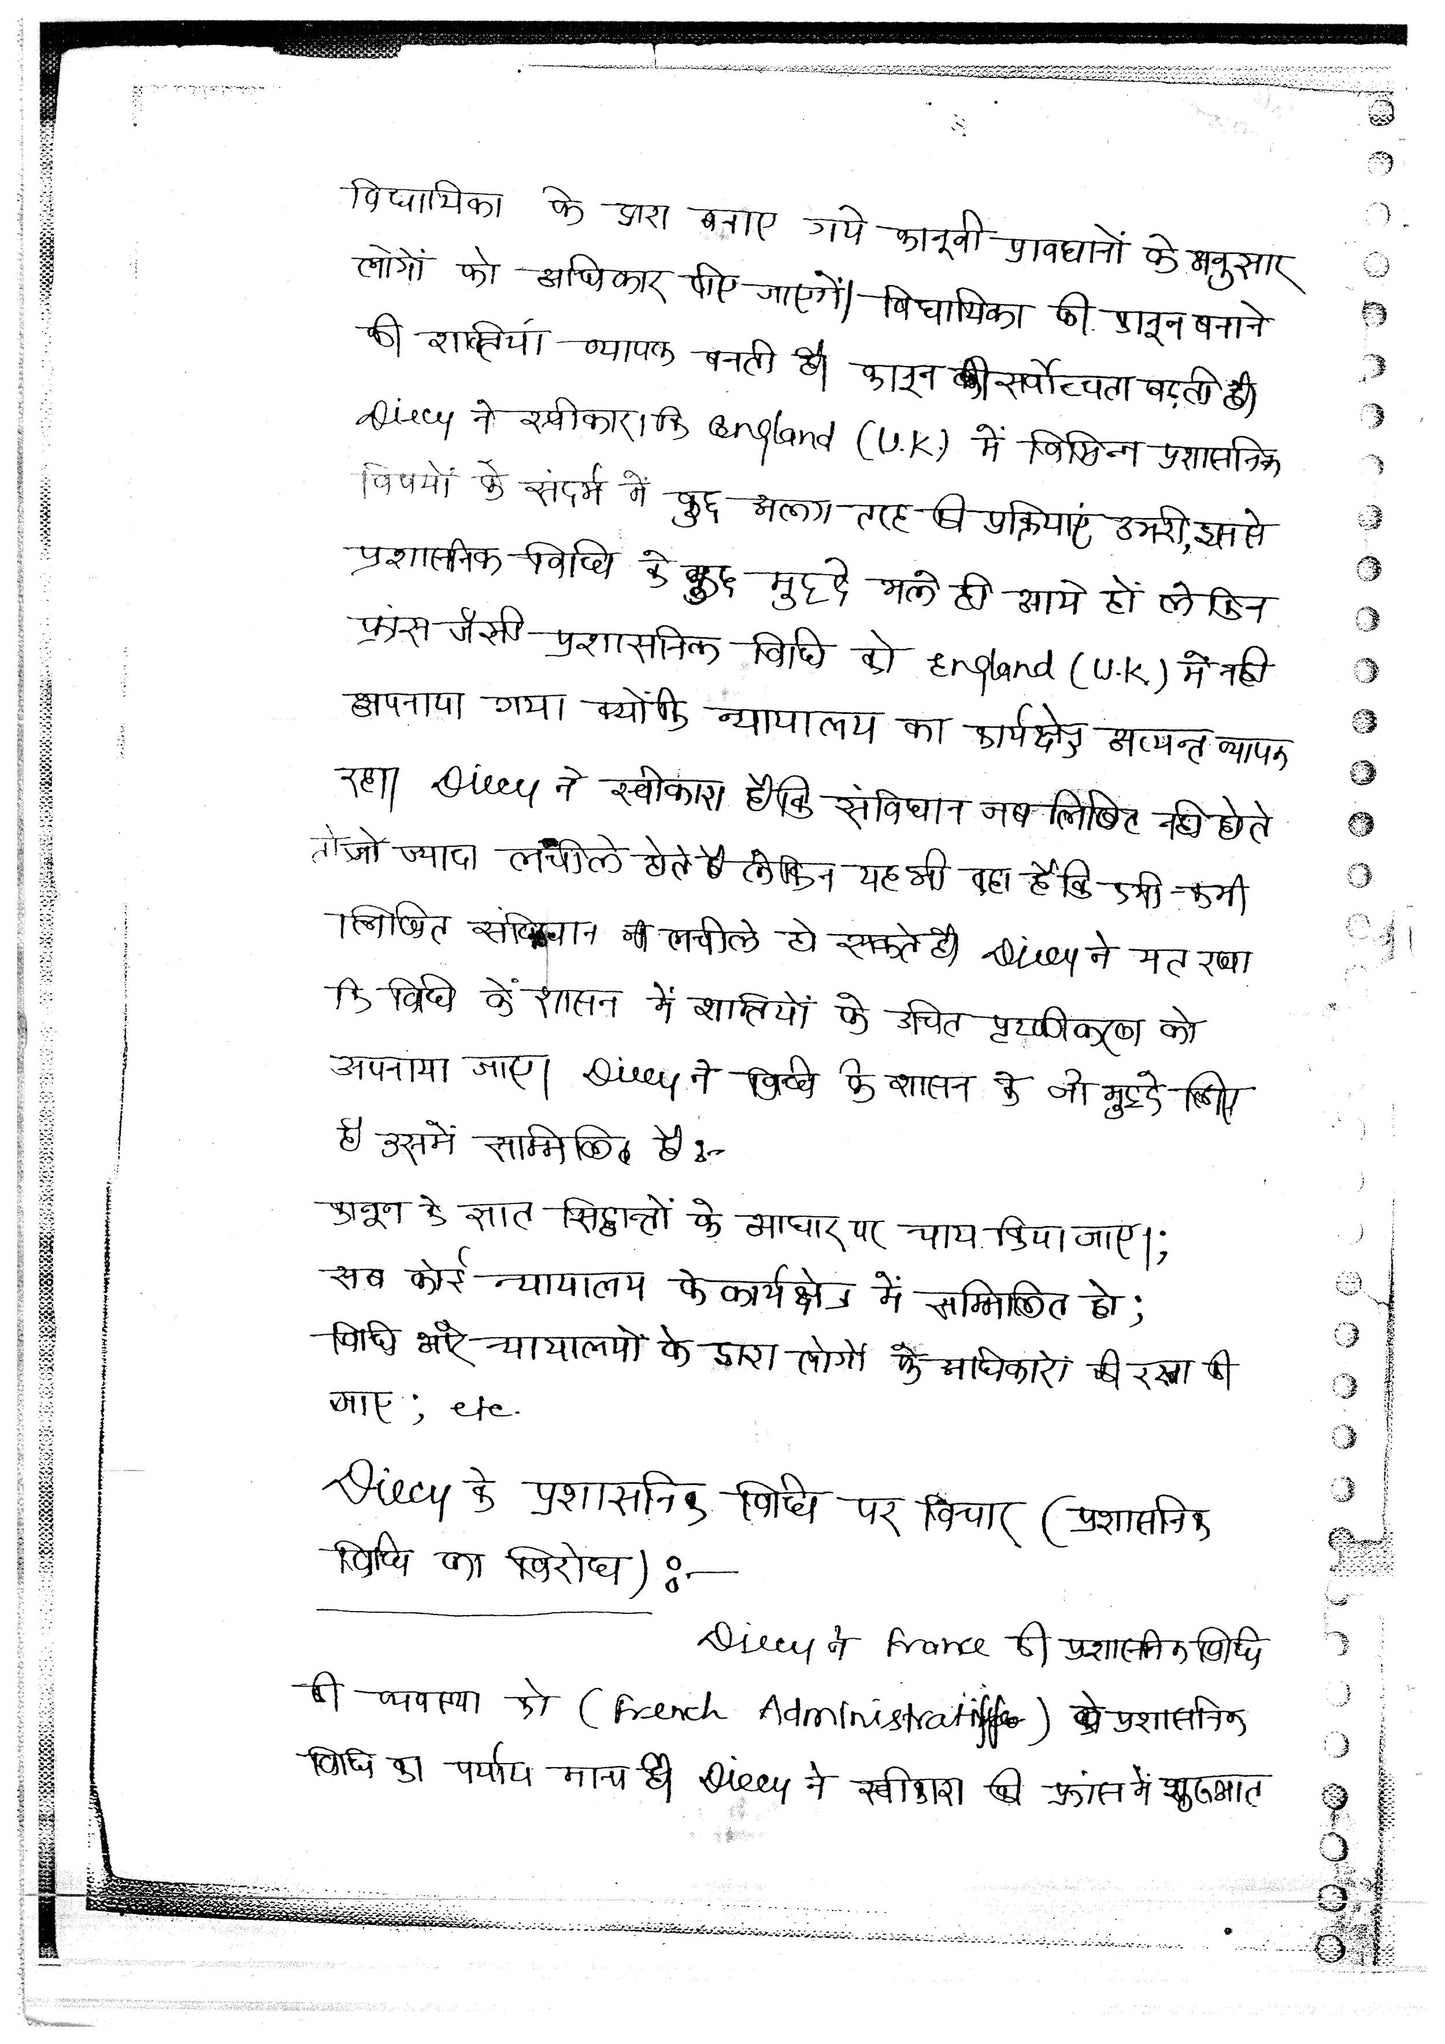 विधायिका के द्वारा बनाए गये कानूनी प्रावधानों के अनुसार
लोगों को अधिकार दीए जाएगें। विधायिका की कानून बनाने
की शक्तियां व्यापक बनती है। कानून की सर्वोच्चता बढ़ती है।
Dicey ने स्वीकारा कि England (U.K.) में विभिन्न प्रशासनिक
विषयों के संदर्भ में कुछ अलग तरह की प्रक्रियाएं उभरी, इससे
प्रशासनिक विधि के कुछ मुद्दे भले ही आये हों लेकिन
फ्रांस जैसी प्रशासनिक विधि को England (U.K.) में नही
अपनाया गया क्योंकि न्यायालय का कार्यक्षेत्र अत्यन्त व्यापक
रहा। Dicey ने स्वीकारा है कि संविधान जब लिखित नही होते
तो जो ज्यादा लचीले होते है लेकिन यह भी कहा है कि कभी-कभी
लिखित संविधान भी लचीले हो सकते है। Dicey ने मत रखा
कि विधि के शासन में शक्तियों के उचित पृथकीकरण को
अपनाया जाए। Dicey ने विधि के शासन के जो मुद्दे लिए
है उसमें सम्मिलित है :-
कानून के ज्ञात सिद्धान्तों के आधार पर न्याय किया जाए।;
सब कोई न्यायालय के कार्यक्षेत्र में सम्मिलित हो;
विधि और न्यायालयों के द्वारा लोगों के अधिकारों की रक्षा की
जाए; etc.
Dicey के प्रशासनिक विधि पर विचार (प्रशासनिक
विधि का विरोध) :—
Dicey ने France की प्रशासनिक विधि
की व्यवस्था को (French Administratiffe) को प्रशासनिक
विधि का पर्याय माना है। Dicey ने स्वीकारा की फ्रांस में शुरूआत